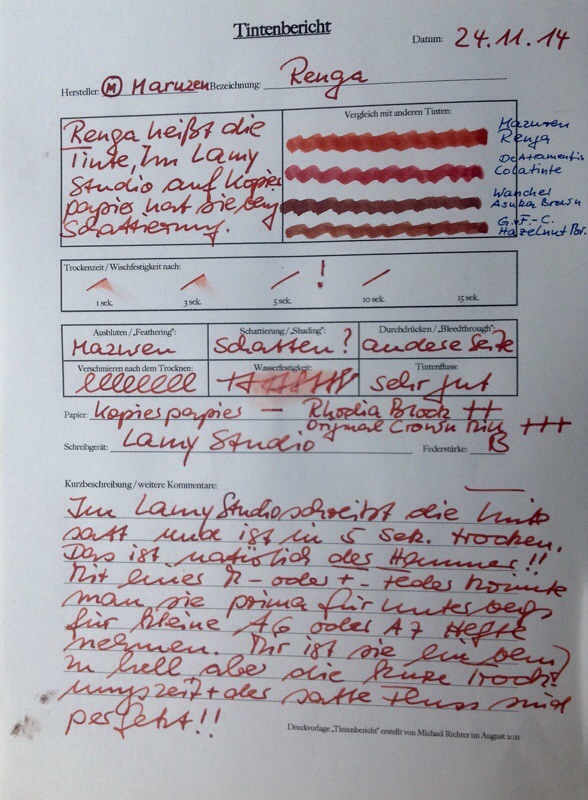 Tintenbericht
Datum: 24.11.14
Hersteller: M Maruzen Bezeichnung: Renga
Renga heißt die
Tinte, Im Lamy
Studio auf Kopier
papier hat sie, 
Schattierung.
Vergleich mit anderen Tinten:
Maruzen
Renga
DeAtramentis
Colatinte
Wancher
Asuka Brown
G.v.F.-C.
Hazelnut Br.
Trockenzeit / Wischfestigkeit nach:
!
1 sek. 3 sek. 5 sek. 10 sek. 15 sek.
Ausbluten / „Feathering": Schattierung / „Shading": Durchdrücken / „Bleedthrough":
Maruzen Schatten? andere Seite
Verschmieren nach dem Trocknen: Wasserfestigkeit: Tintenfluss:
sehr gut
Papier: Kopierpapier — Rhodia Block ++
Original Crown Mill +++
Schreibgerät: Lamy Studio Federstärke: B
Kurzbeschreibung / weitere Kommentare:
Im Lamy Studio schreibt die Tinte
satt und ist in 5 Sek. trocken.
Das ist natürlich der Hammer!!
Mit einer oder Feder könnte
man sie prima für unterwegs
für kleine A6 oder A7 Hefte
nehmen. Mir ist sie ein
zu hell aber die kurze Trock
nungszeit + der satte Fluss sind
perfekt!!
Druckvorlage „Tintenbericht" erstellt von Michael Richter im August 2011